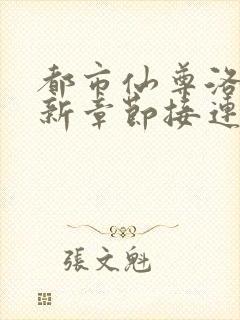 都市仙尊洛
新章節接連
張文魁